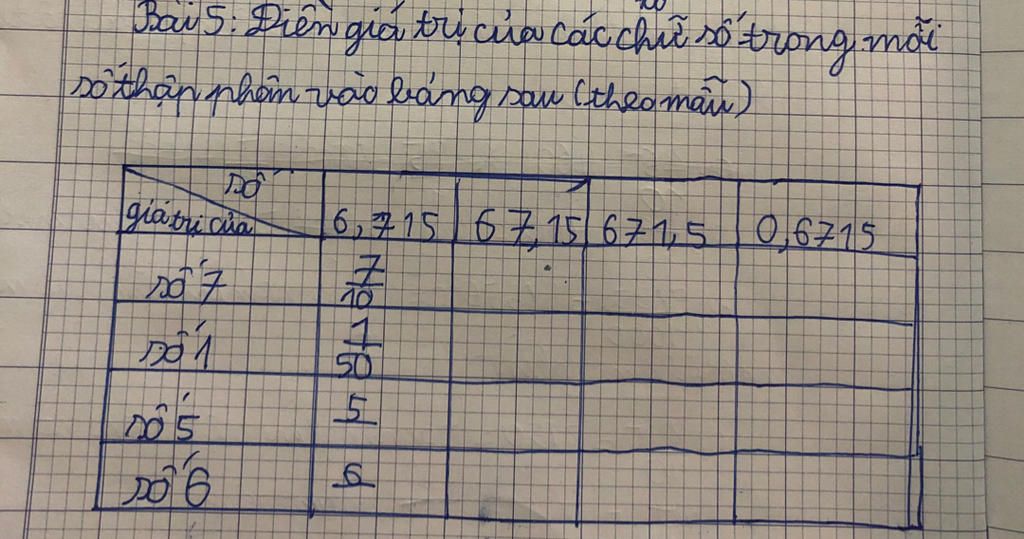 Bài 5: Điền giá trị của các chữ số trong mỗi
số thập phân vào bảng sau (theo mẫu)
số
giá trị của 6,715 67,15 671,5 0,6715
số 7 7/10
số 1 1/50
số 5 5
số 6 6